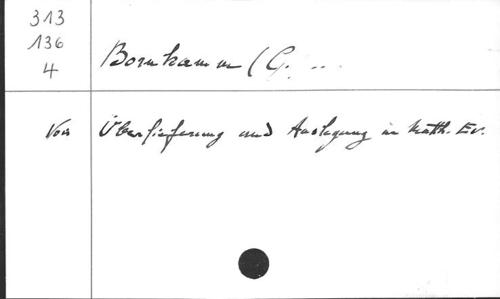 313
136
4
Bornkamm (G. ...
Voir Überlieferung und Auslegung im Matth. Ev.